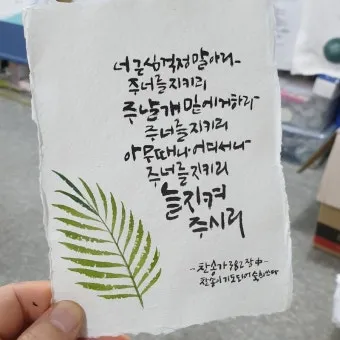 너 근심 걱정 말아라
주 너를 지키리
주 날개 밑에 거하라
주 너를 지키리
아무 때나 어디서나
주 너를 지키리
늘 지켜
주시리
-찬송가 382장 中-
찬송이 기도되어